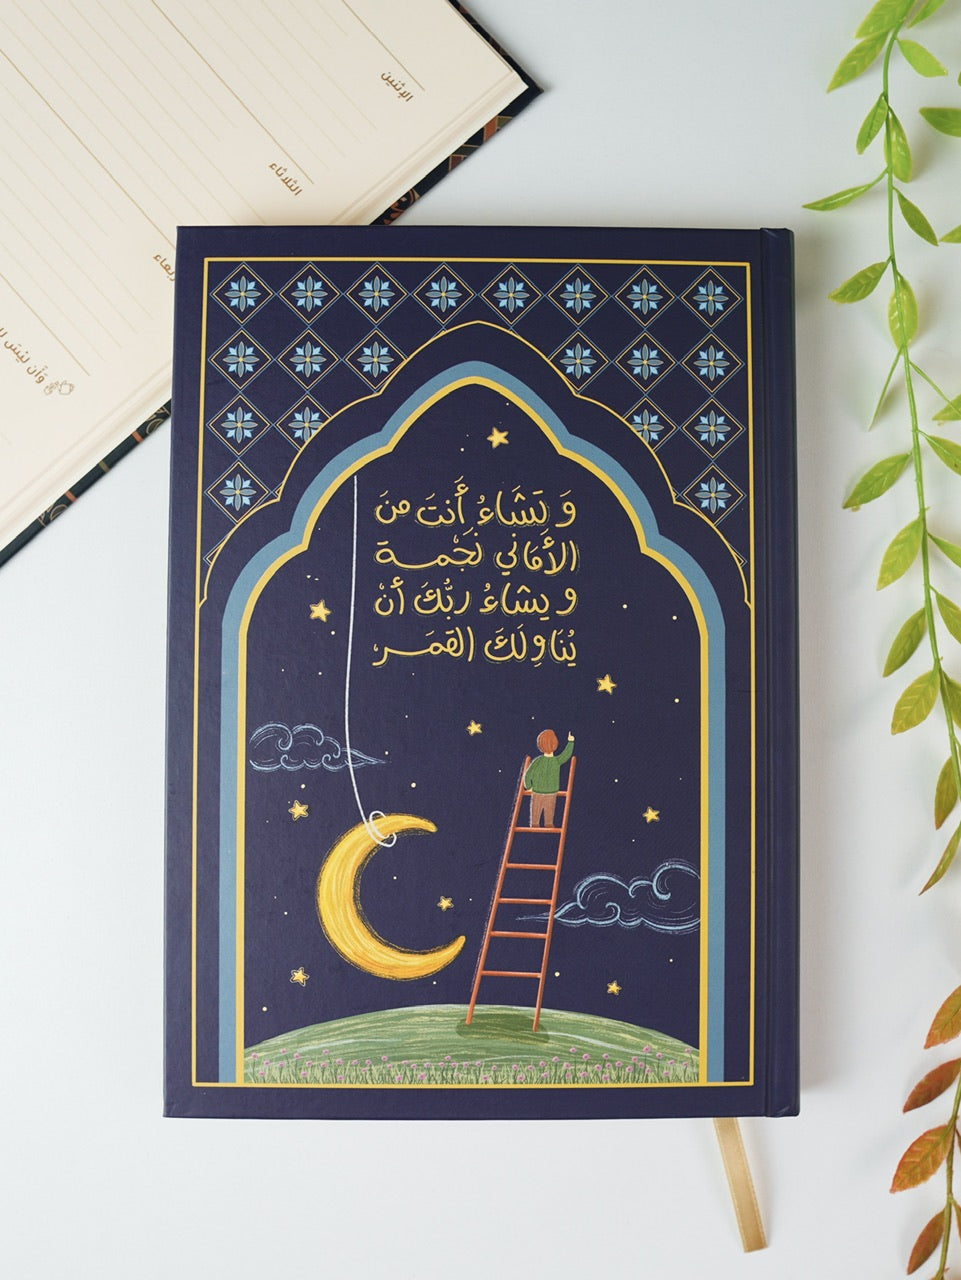 الإثنين
الثلاثاء
وَأن ليس
وَ تَشَاءُ أَنتَ مِنَ
الأَمَاني نَجْمَة
و يشاءُ ربُّكَ أنْ
يُنَاوِلَكَ القَمَر